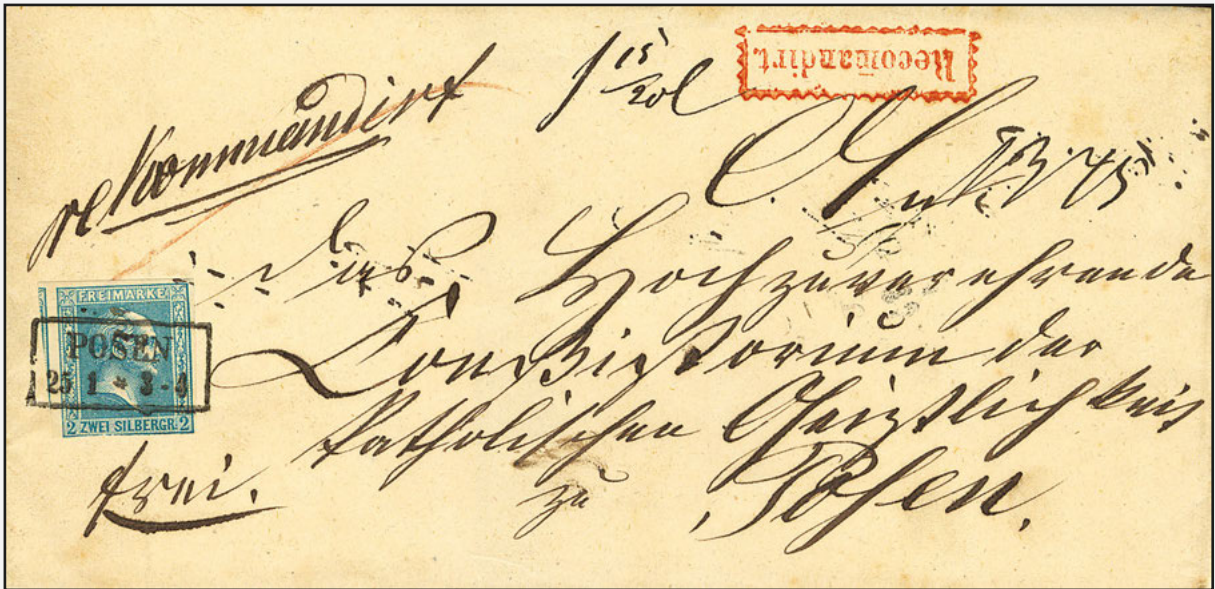 rekommandirt
Recomandirt.
Das Hochzuverehrende
Consistorium der
katholischen Geistlichkeit
zu Posen.
frei.
FREIMARKE
POSEN
25 1 * 3-4
2 ZWEI SILBERGR. 2